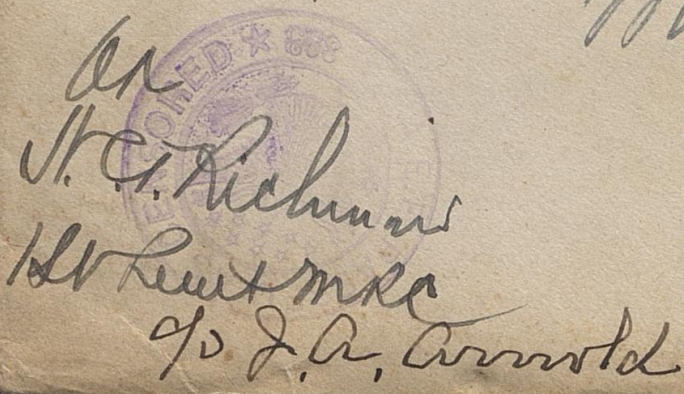 OK
H. G. Richmond
1st Lieut MRC
c/o J. A. Arnold
CENSORED